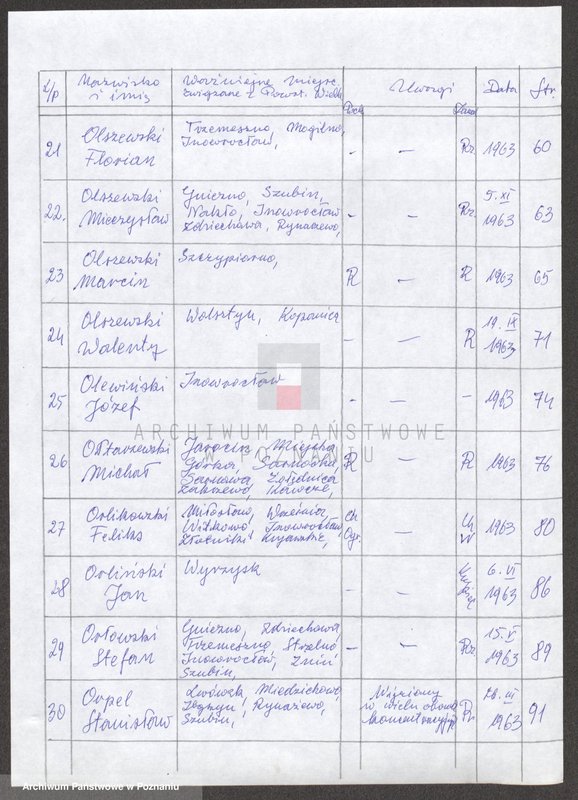 L/p Nazwisko i imię Ważniejsze miejsc. związane z Powst. Wielk. Poch. Uwagi Zawód Data Str.
21 Olszewski Florian Trzemeszno, Mogilno, Inowrocław, - - Rz. 1963 60
22. Olszewski Mieczysław Gniezno, Szubin, Nakło, Inowrocław Zdziechowa, Rynarzewo, - - Rz. 5. XI 1963 63
23 Olszewski Marcin Szczypiorno, R - R 1963 65
24 Olszewski Walenty Wolsztyn, Kopanica - - R 19. IX 1963 71
25 Olewiński Józef Inowrocław - - - 1963 74
26 Ołtarzewski Michał Jarocin, Miejska Górka, Sarnówka Sarnowa, Zołędnica Zakrzewo, R - R 1963 76
27 Orlikowski Feliks Miłosław, Września, Witkowo, Inowrocław Złotniki Kujawskie, Ch Ogr. - 1963 80
28 Orliński Jan Wyrzysk - - 6. VI 1963 86
29 Orłowski Stefan Gniezno, Zdziechowa Trzemeszno, Strzelno Inowrocław, Żnin Szubin, - - Rz 15. V 1963 89
30 Orpel Stanisław Lwówek, Miedzichowo, Zbąszyń, Rynarzewo, Szubin, Więziony w wielu obozach koncentracyjn. Rz. 28. III 1963 91
ARCHIWUM PAŃSTWOWE
W POZNANIU
Archiwum Państwowe w Poznaniu